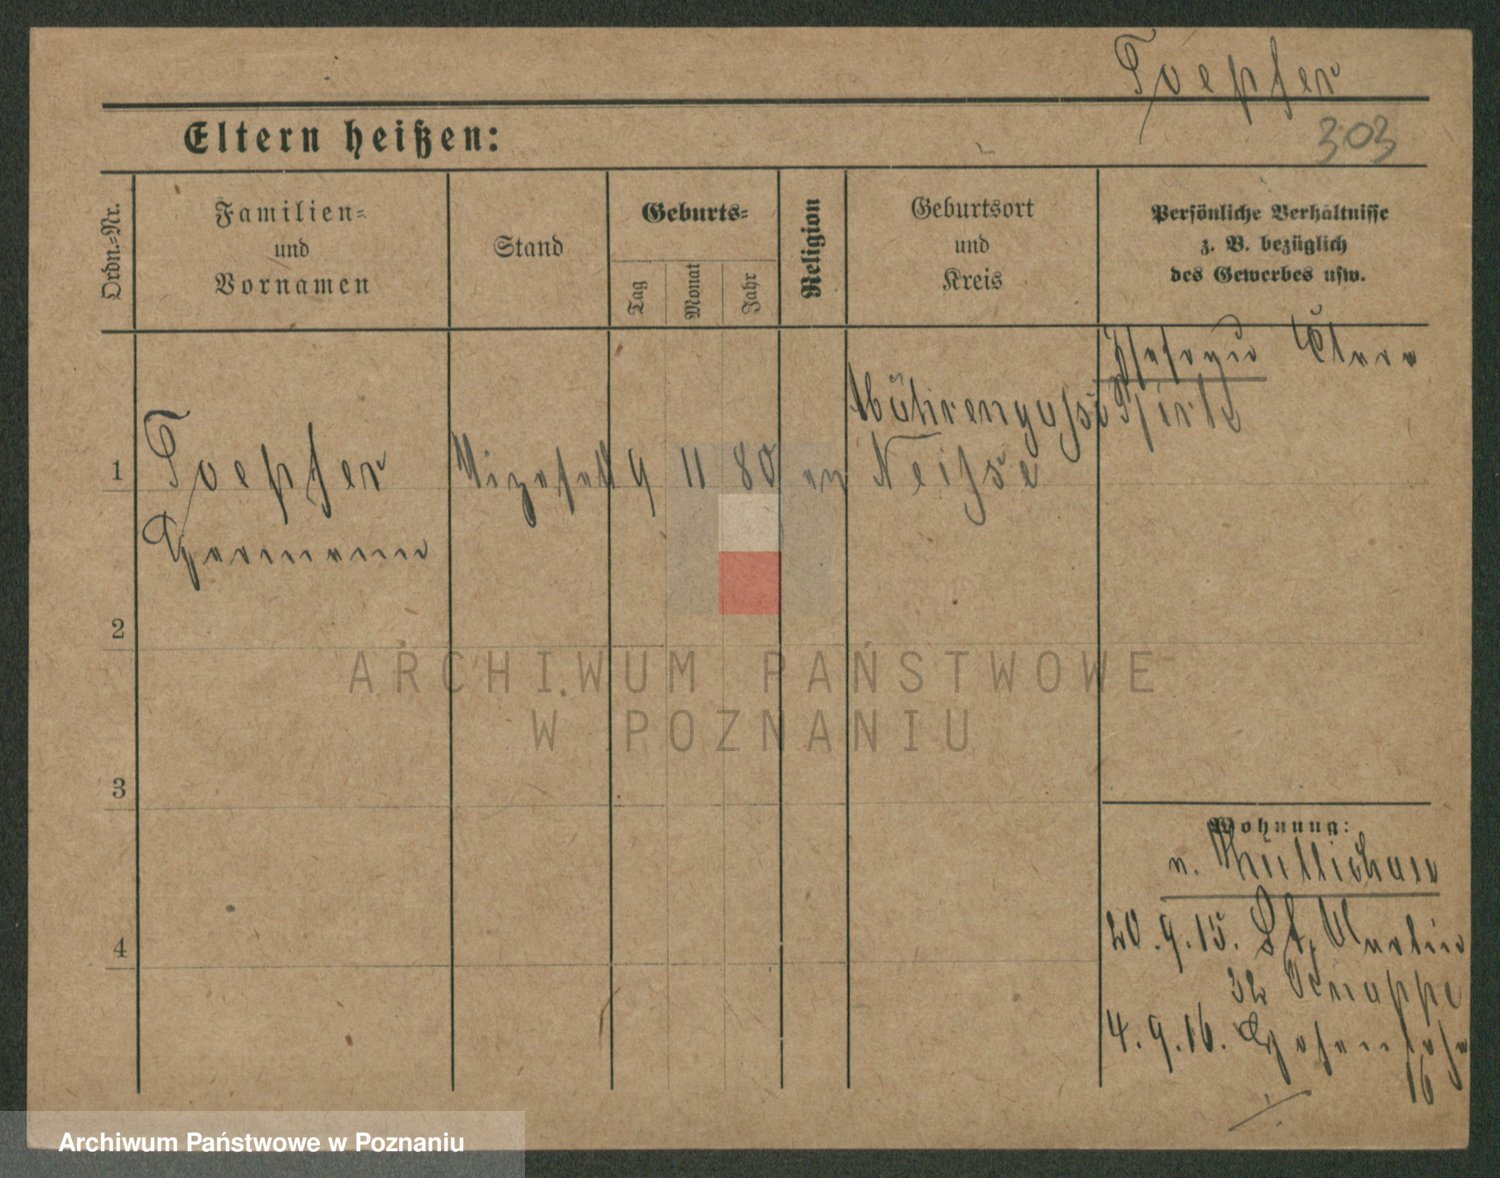 Toepfer
303
Eltern heißen:
Ordn.=Nr.
Familien=
und
Vornamen
Stand
Geburts=
Tag
Monat
Jahr
Religion
Geburtsort
und
Kreis
Persönliche Verhältnisse
z. B. bezüglich
des Gewerbes usw.
Clara
1
Toepfer
Hermann
Vizefeldw
9
11
80
ev
Mährengasse
Neisse
2
3
4
ARCHIWUM PAŃSTWOWE
W POZNANIU
Wohnung:
v. Züllichau
20.9.15. St. Martin
32 Knappe
4.9.16. Hohenlohe
16
Archiwum Państwowe w Poznaniu